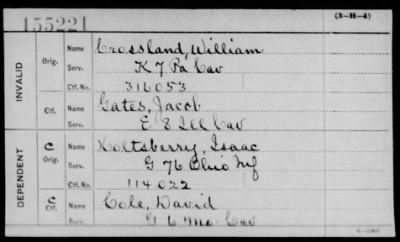 155221
(3-H-4)
INVALID
Orig.
Name Crossland, William
Serv. K 7 Pa Cav
Ctf. No. 316053
Ctf.
Name Gates, Jacob
Serv. E 8 Ill Cav
DEPENDENT
C
Orig.
Name Holtsberry, Isaac
Serv. G 76 Ohio Inf
Ctf. No. 114022
C
Ctf.
Name Cole, David
Serv. G 6 Mo. Cav